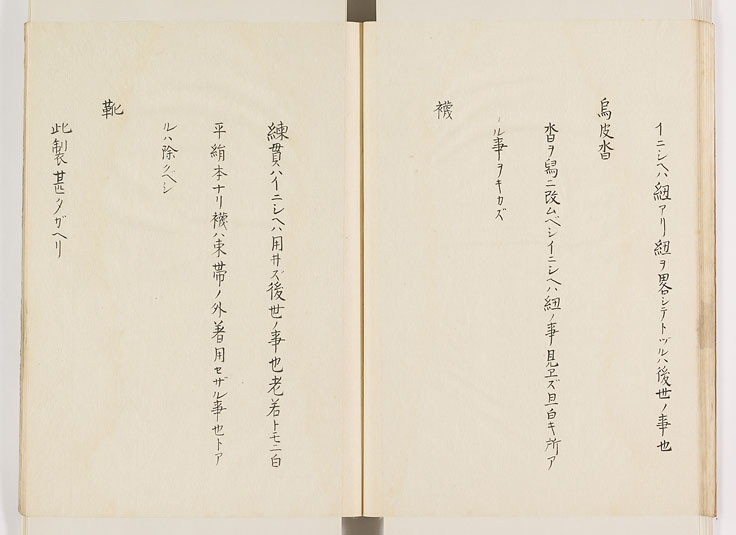 イニシヘハ紐アリ紐ヲ畧シテトヅルハ後世ノ事也
烏皮沓
沓ヲ舄ニ改ムベシイニシヘハ紐ノ事見ヱズ且白キ所ア
ル事ヲキカズ
襪
練貫ハイニシヘハ用井ズ後世ノ事也老若トモニ白
平絹本ナリ襪ハ束帯ノ外著用セザル事也トア
ルハ除クベシ
靴
此製甚タガヘリ